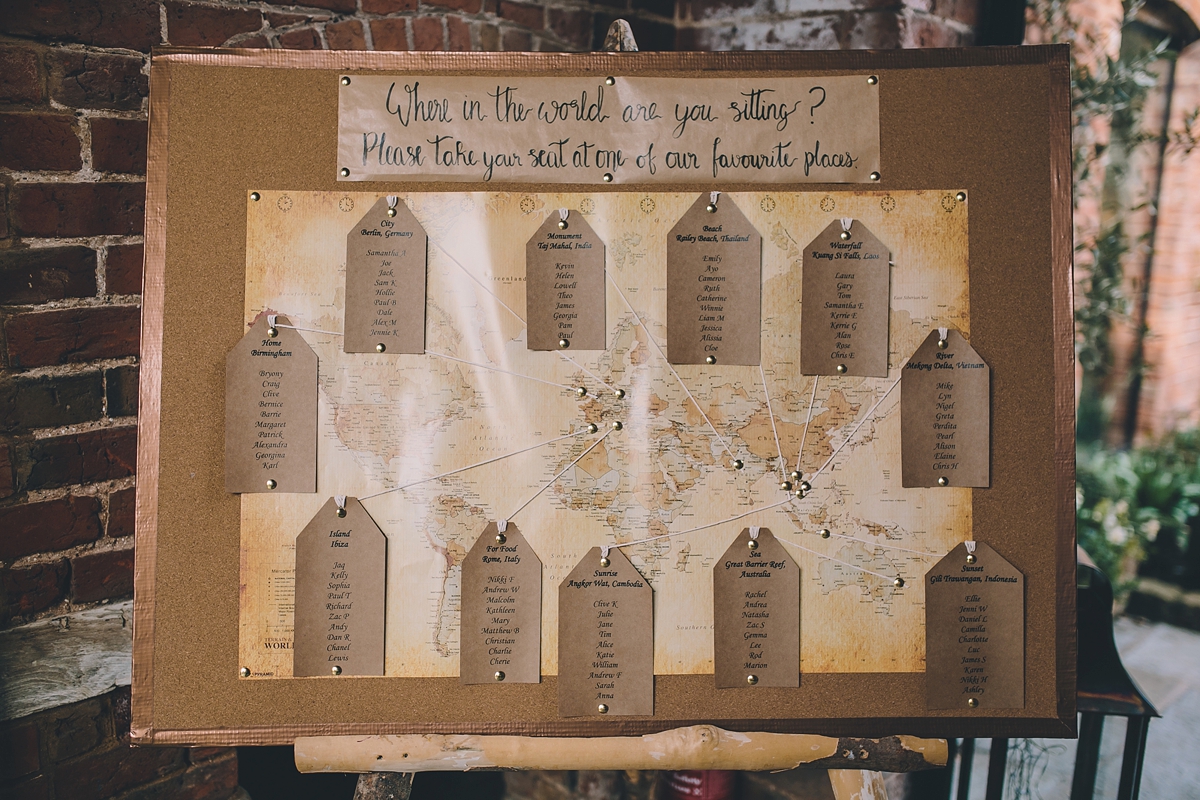 Where in the world are you sitting?
Please take your seat at one of our favourite places.
City
Berlin, Germany
Samantha A
Joe
Jack
Sam K
Hollie
Paul B
Dale
Alex M
Jennie K
Monument
Taj Mahal, India
Kevin
Helen
Lowell
Theo
James
Georgia
Pam
Paul
Beach
Railey Beach, Thailand
Emily
Ayo
Cameron
Ruth
Catherine
Winnie
Liam M
Jessica
Alissia
Cloe
Waterfall
Kuang Si Falls, Laos
Laura
Gary
Tom
Samantha E
Kerrie E
Kerrie G
Alan
Rose
Chris E
Home
Birmingham
Bryony
Craig
Clive
Bernice
Barrie
Margaret
Patrick
Alexandra
Georgina
Karl
River
Mekong Delta, Vietnam
Mike
Lyn
Nigel
Greta
Perdita
Pearl
Alison
Elaine
Chris H
Island
Ibiza
Jaq
Kelly
Sophia
Paul T
Richard
Zac P
Andy
Dan R
Chanel
Lewis
For Food
Rome, Italy
Nikki F
Andrew W
Malcolm
Kathleen
Mary
Matthew B
Christian
Charlie
Cherie
Sunrise
Angkor Wat, Cambodia
Clive K
Julie
Jane
Tim
Alice
Katie
William
Andrew F
Sarah
Anna
Sea
Great Barrier Reef,
Australia
Rachel
Andrea
Natasha
Zac S
Gemma
Lee
Rod
Marion
Sunset
Gili Trawangan, Indonesia
Ellie
Jenni W
Daniel L
Camilla
Charlotte
Luc
James S
Karen
Nikki H
Ashley